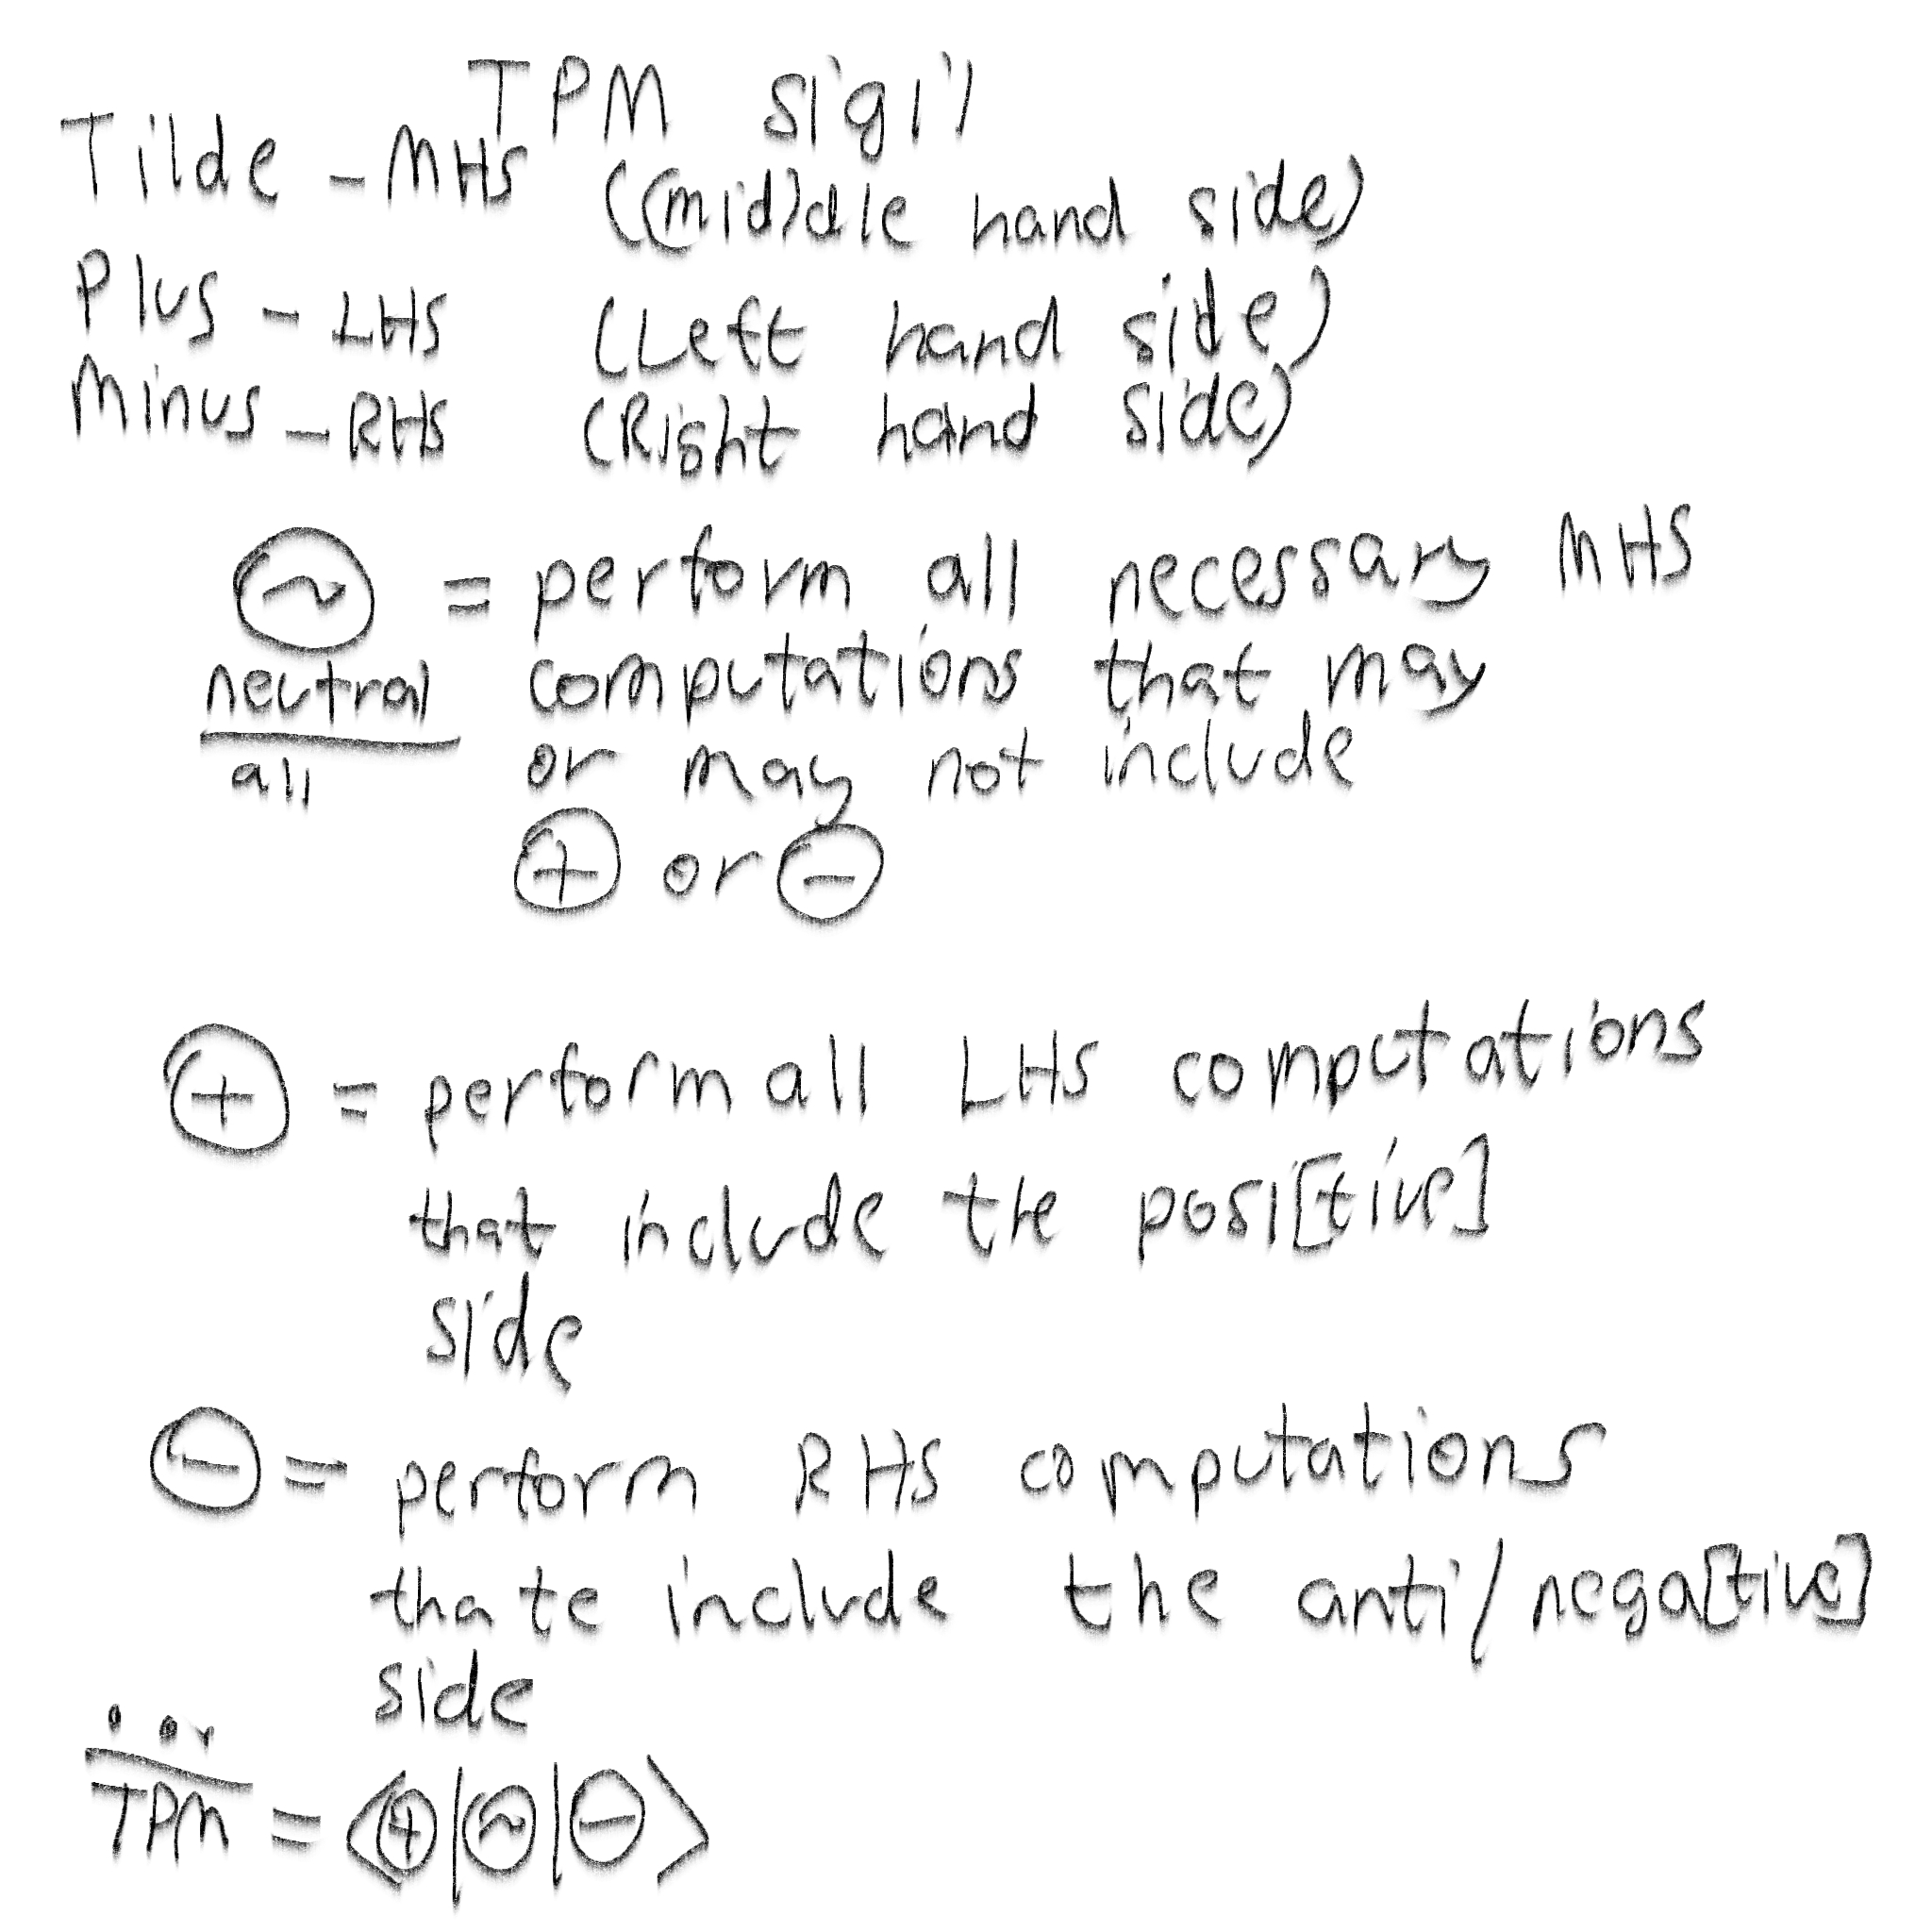 TPM sigil
Tilde - MHS ((mid)dle hand side)
Plus - LHS (Left hand side)
Minus - RHS (Right hand side)
⊙~ = perform all necessary MHS
neutral computations that may
all or may not include
⊕ or ⊖
⊕ = perform all LHS computations
that include the posi[tive]
side
⊖ = perform RHS computations
thate include the anti/nega[tive]
side
TPM = <⊕|~|⊖>